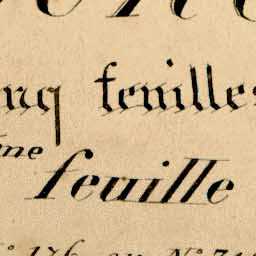 inq feuilles
ème feuille
N° 176 au N° 71